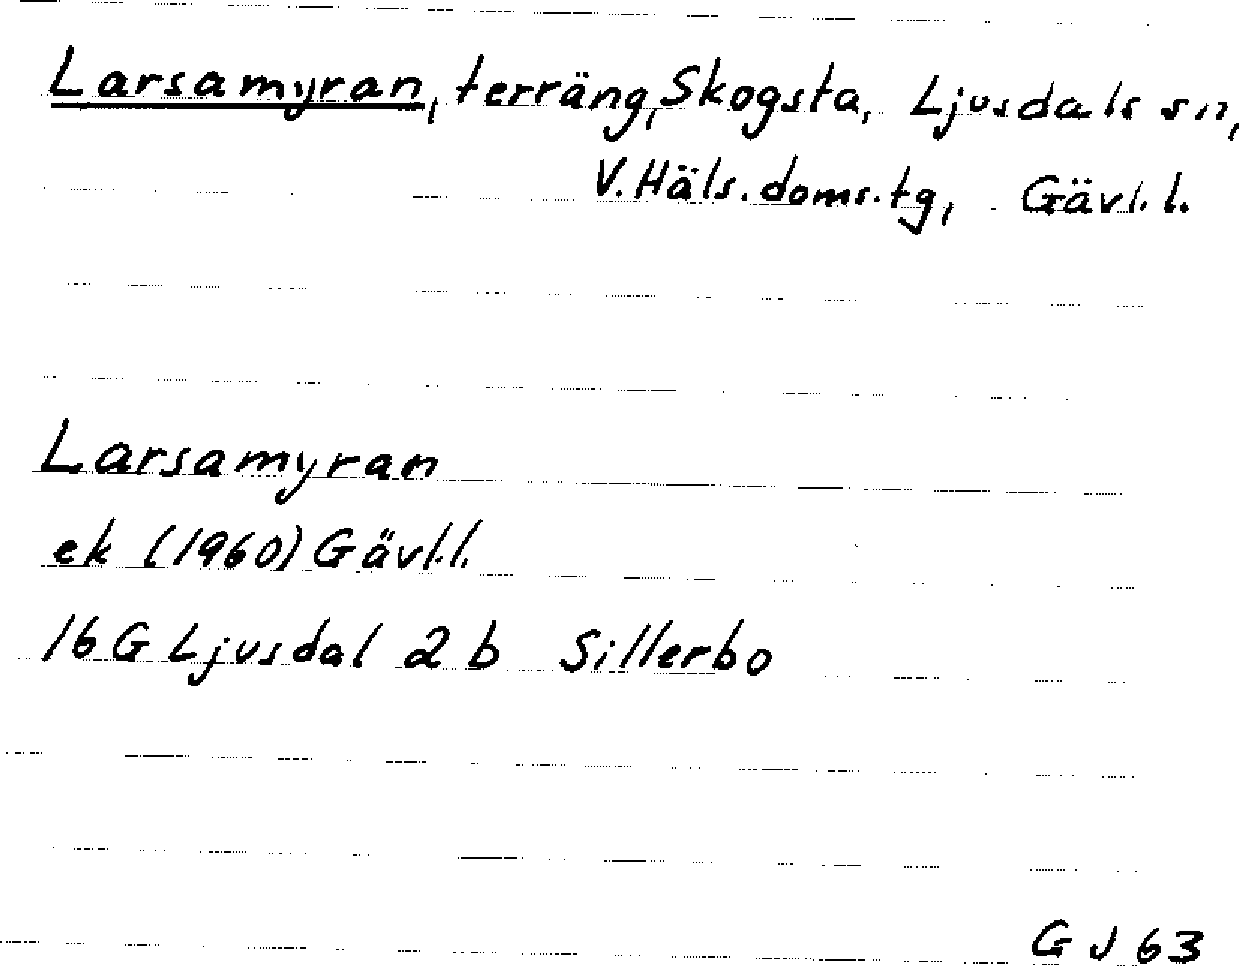 Larsamyran, terräng, Skogsta, Ljusdals sn,
V. Häls. doms. tg, Gävl. l.
Larsamyran
ek (1960) Gävl. l.
16 G Ljusdal 2 b Sillerbo
G J 63